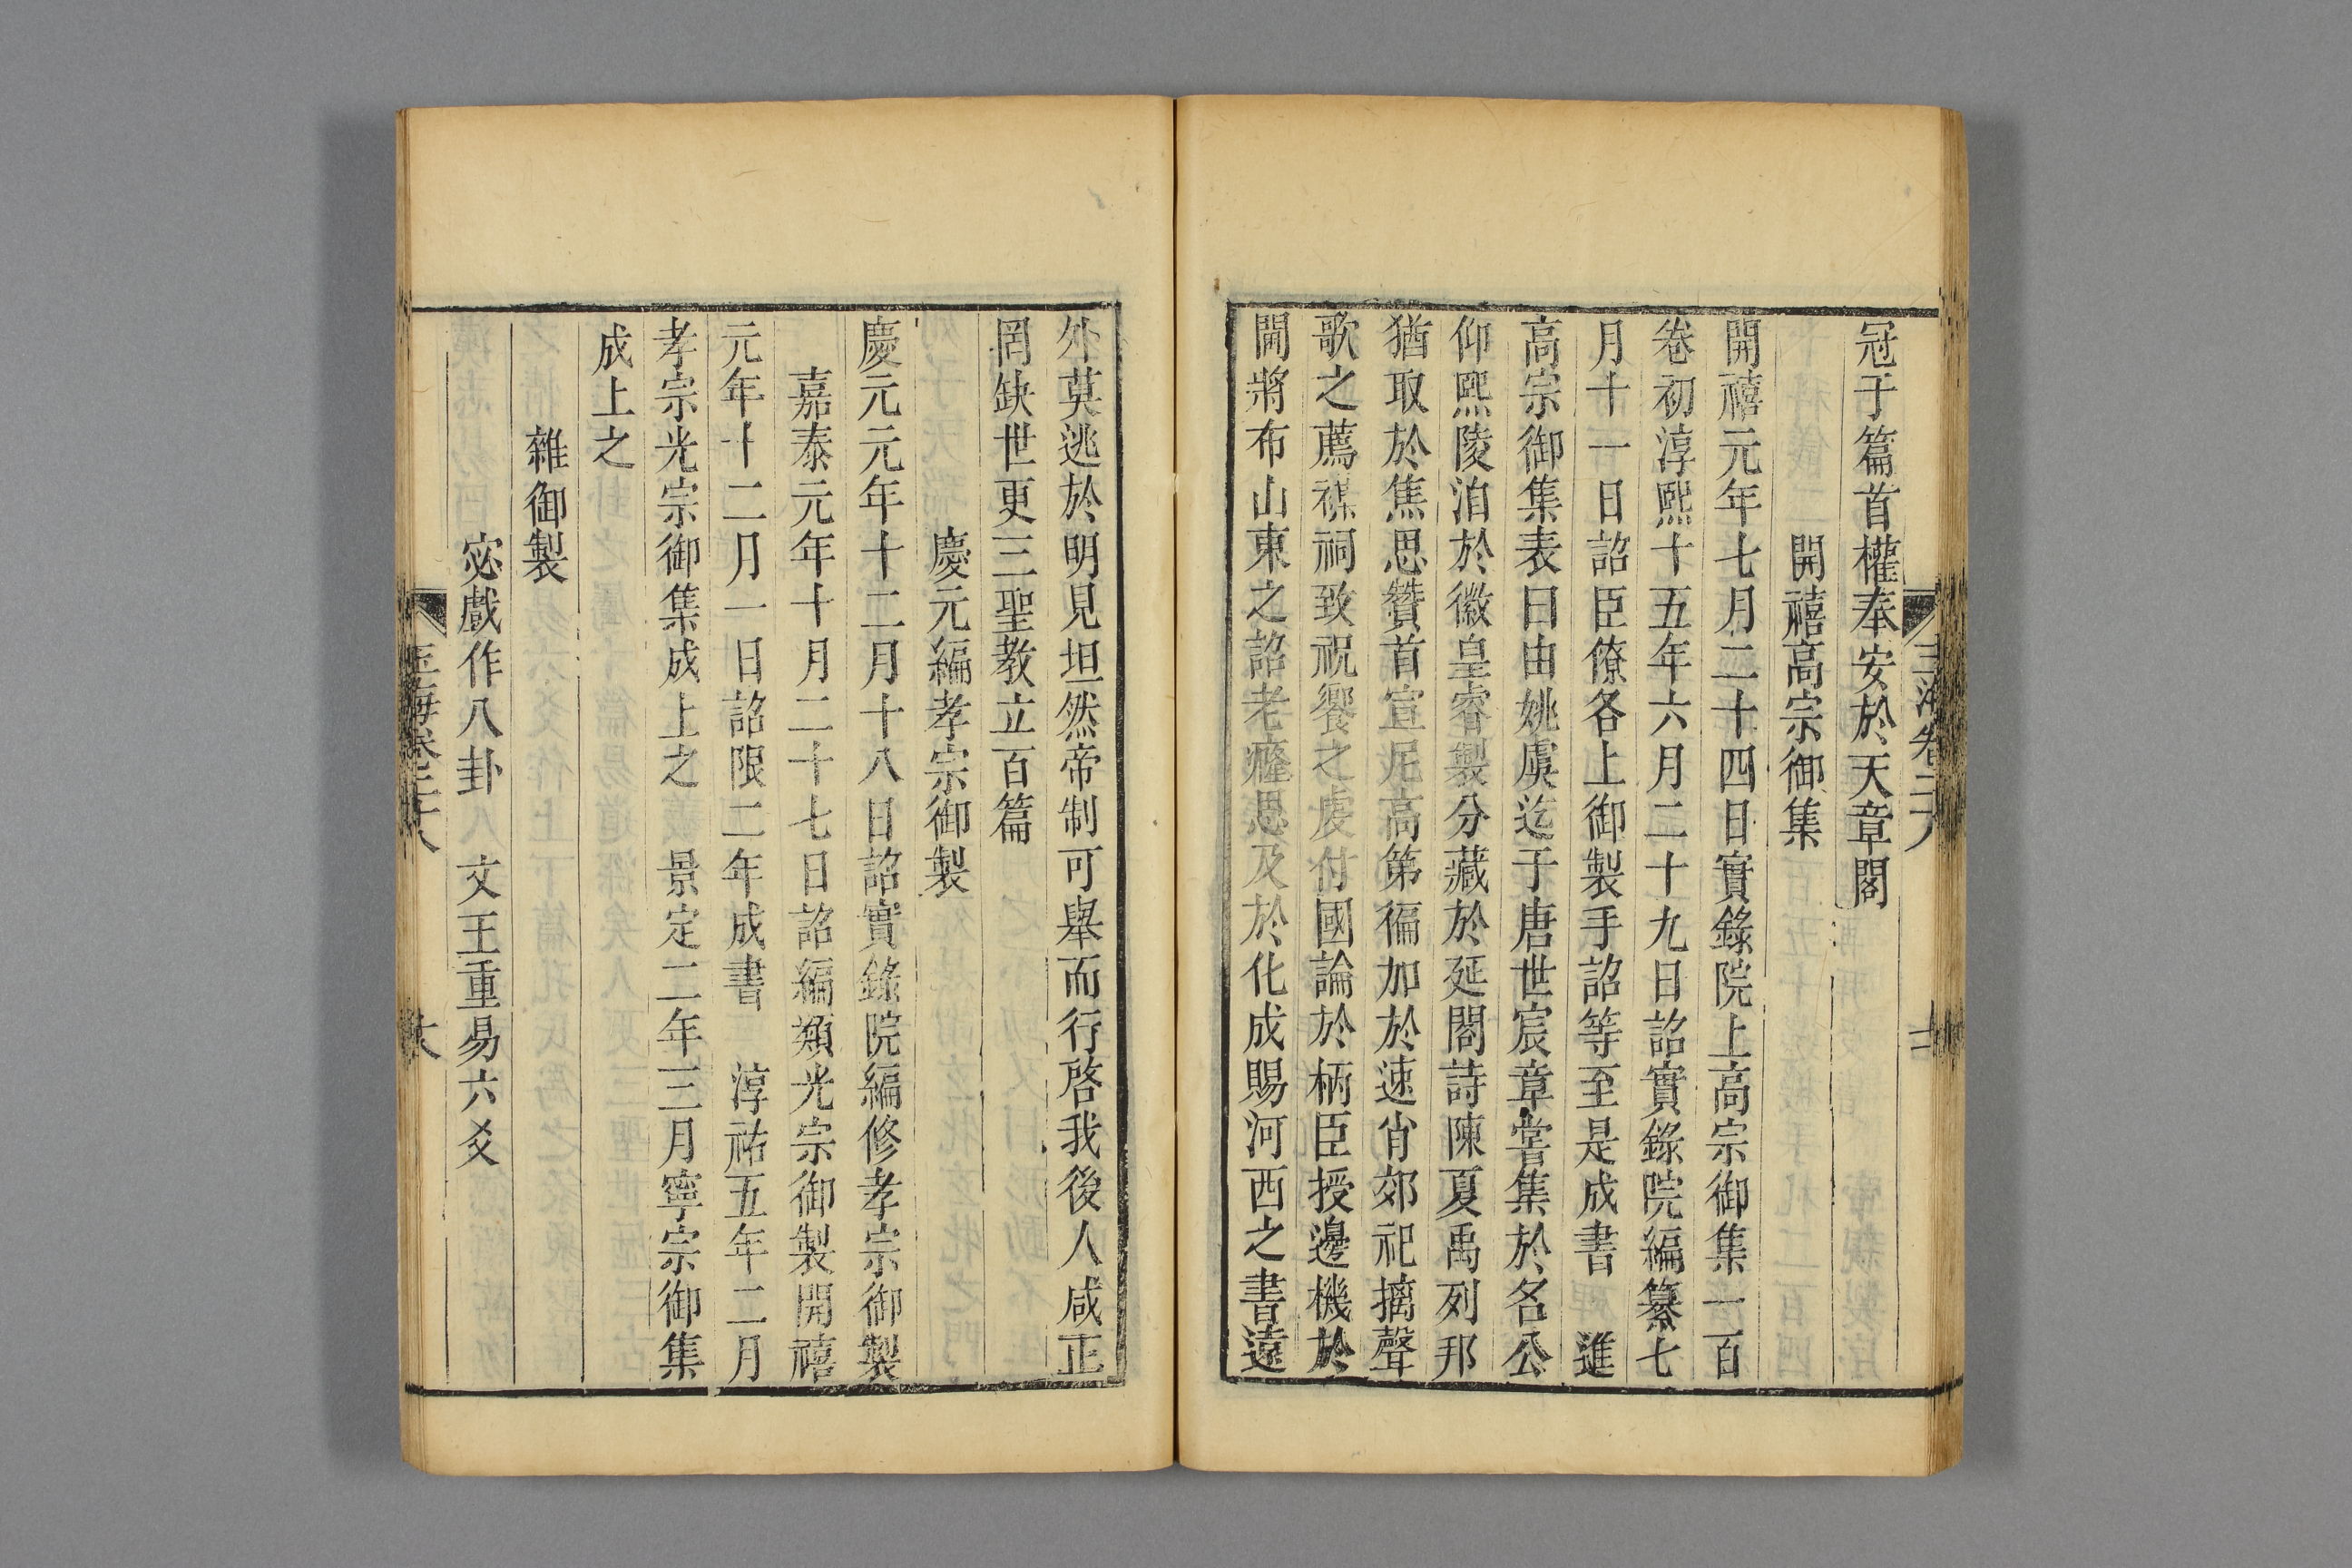 冠于篇首權奉安於天章閣
開禧高宗御集
開禧元年七月二十四日實錄院上高宗御集一百
卷初淳熙十五年六月二十九日詔實錄院編纂七
月十一日詔臣僚各上御製手詔等至是成書 進
高宗御集表曰由姚虞迄于唐世宸章嘗集於名公
仰熙陵洎於徽皇睿製分藏於延閣詩陳夏禹列邦
猶取於焦思贊首宣尼高第徧加於速肖郊祀摛聲
歌之薦禖祠致祝饗之虔付國論於柄臣授邊機於
閫將布山東之詔老癃思及於化成賜河西之書遠
外莫逃於明見坦然帝制可舉而行啓我後人咸正
罔缺世更三聖教立百篇
慶元編孝宗御製
慶元元年十二月十八日詔實錄院編修孝宗御製
嘉泰元年十月二十七日詔編類光宗御製開禧
元年十二月一日詔限二年成書 淳祐五年二月
孝宗光宗御集成上之 景定二年三月寧宗御集
成上之
雜御製
宓戲作八卦 文王重易六爻
玉海卷二十八